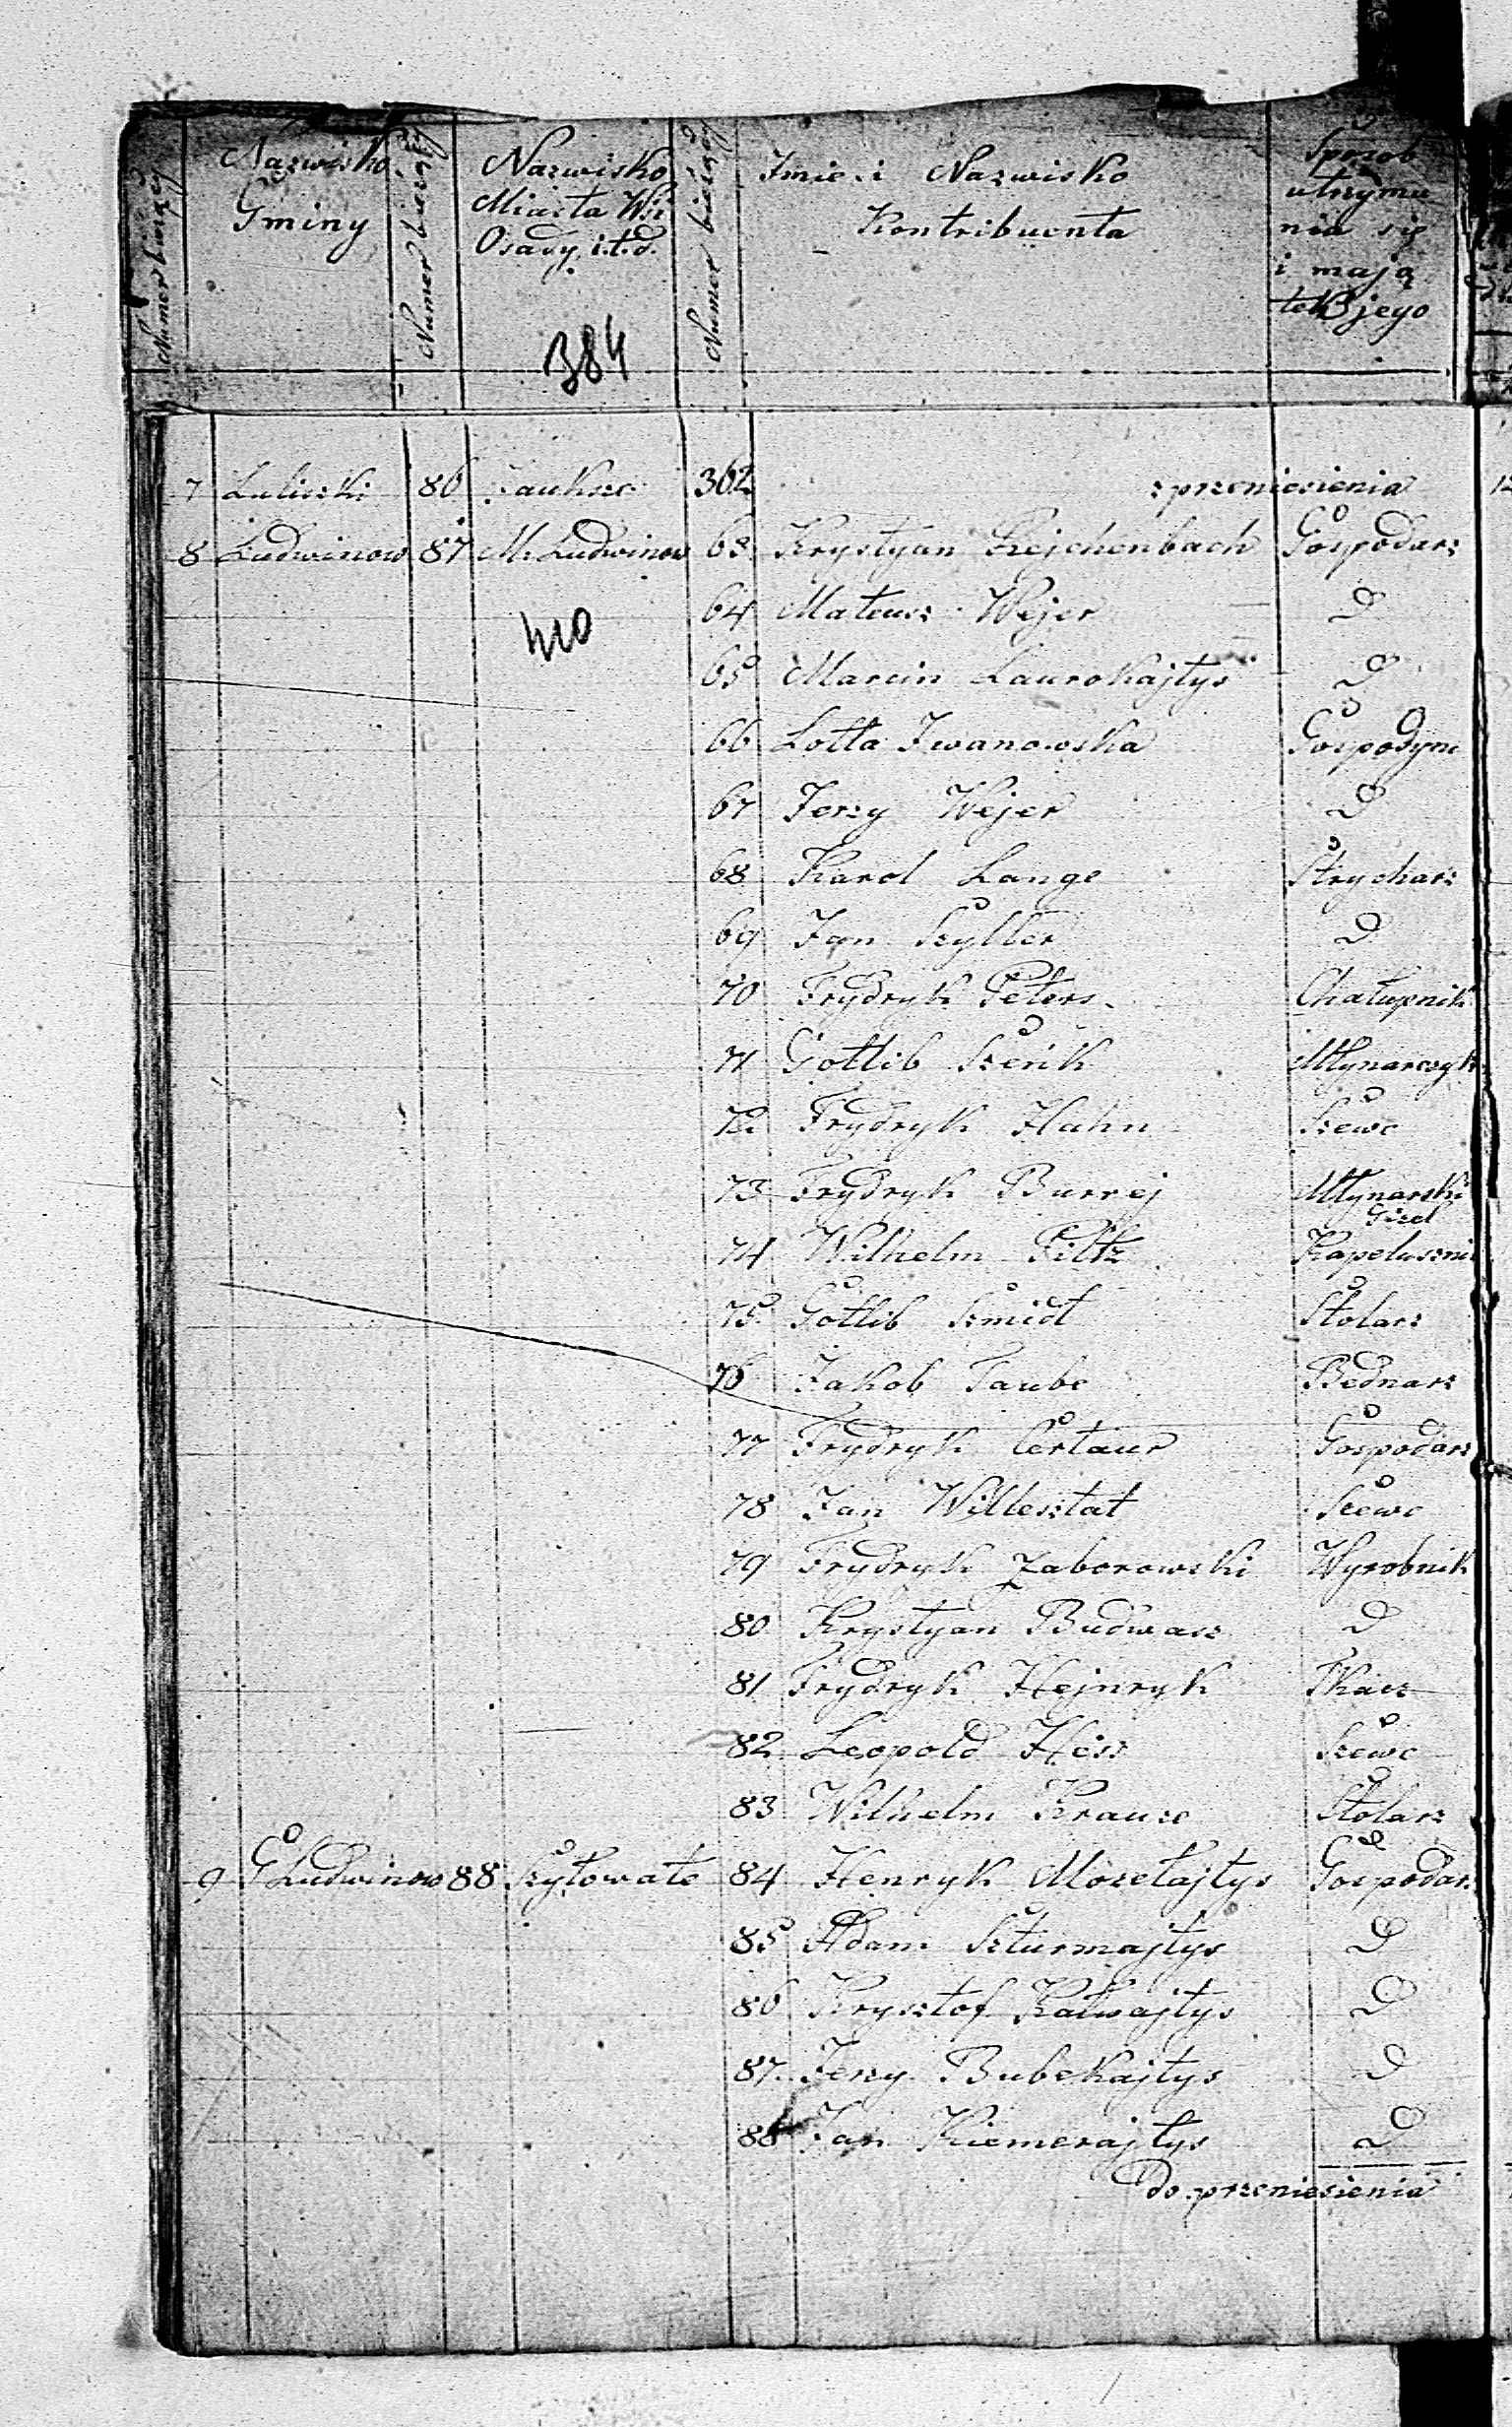 Numer bieżący
Nazwisko Gminy
Numer bieżący
Nazwisko Miasta Wsi Osady i.t.d.
Numer bieżący
Imie i Nazwisko Kontribuenta
Sposob utrzymania się i majątek jego
384
7 86 362 z przeniesienia
8 Ludwinow 87 M. Ludwinow 63 Krystyan Rejchenbach Gospodarz
410
64 Mateusz Wejer D
65 Marcin Laurokajtys D
66 Lotta Iwanowska Gospodyni
67 Jerzy Wejer D
68 Karol Lange Strycharz
69 Jan Szyller D
70 Frydryk Peters Chałupnik
71 Gottlib Szenk Młynarczyk
72 Frydryk Hahn Szewc
73 Frydryk Burrej Młynarski Gizel
74 Wilhelm Piltz Kapelusznik
75 Gotlib Szmidt Stolarz
76 Jakob Taube Bednarz
77 Frydryk Certaur Gospodarz
78 Jan Willesztat Szewc
79 Frydryk Zaborowski Wyrobnik
80 Krystyan Budwasz D
81 Frydryk Hejnryk Tkacz
82 Leopold Hess Szewc
83 Wilhelm Krauze Stolarz
9 G Ludwinow 88 Szyłowate 84 Henryk Mozetajtys Gospodarz
85 Adam Szturmajtys D
86 Krysztof Kalwajtys D
87 Jerzy Bubekajtys D
88 Jan Kiemerajtys D
Do przeniesienia